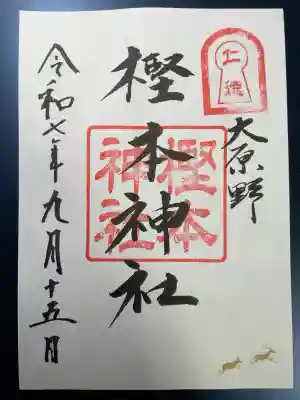 大原野
樫本神社
令和七年九月十五日
樫本
神社
上穂